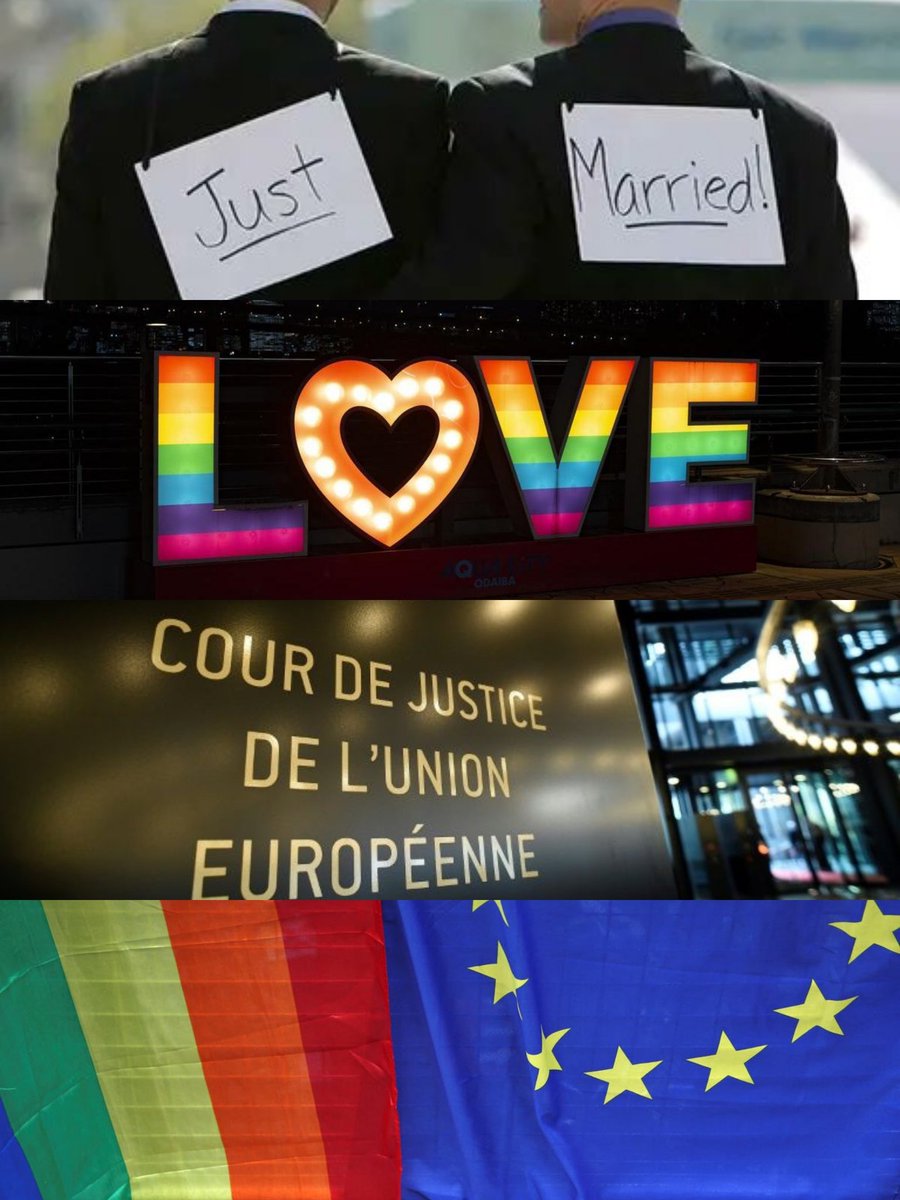 Just
Married!
LOVE
ODAIBA
COUR DE JUSTICE
DE L'UNION
EUROPÉENNE